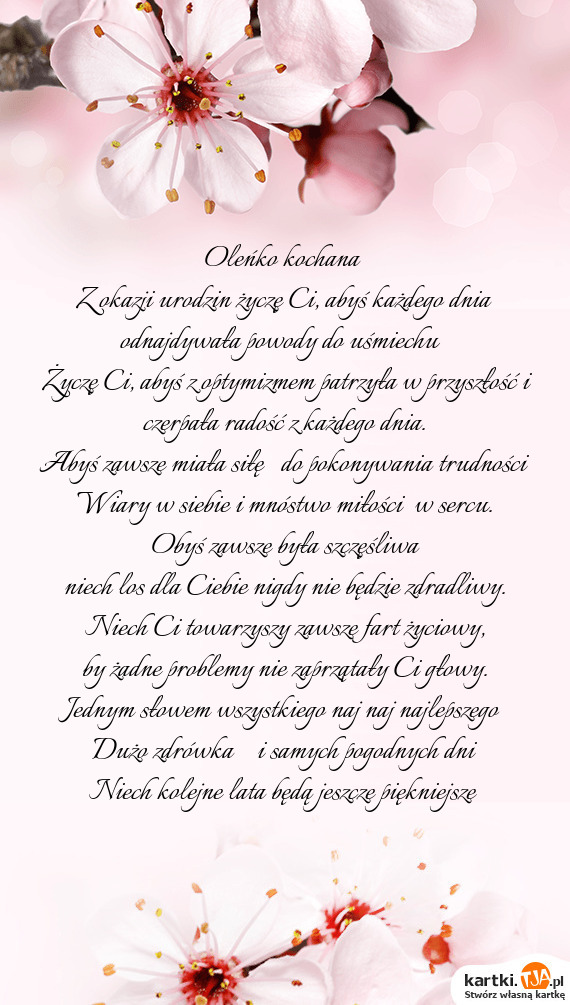 Oleńko kochana
Z okazji urodzin życzę Ci, abyś każdego dnia
odnajdywała powody do uśmiechu
Życzę Ci, abyś z optymizmem patrzyła w przyszłość i
czerpała radość z każdego dnia.
Abyś zawsze miała siłę do pokonywania trudności
Wiary w siebie i mnóstwo miłości w sercu.
Obyś zawsze była szczęśliwa
niech los dla Ciebie nigdy nie będzie zdradliwy.
Niech Ci towarzyszy zawsze fart życiowy,
by żadne problemy nie zaprzątały Ci głowy.
Jednym słowem wszystkiego naj naj najlepszego
Dużo zdrówka i samych pogodnych dni
Niech kolejne lata będą jeszcze piękniejsze
kartki.TJA.pl
Stwórz własną kartkę